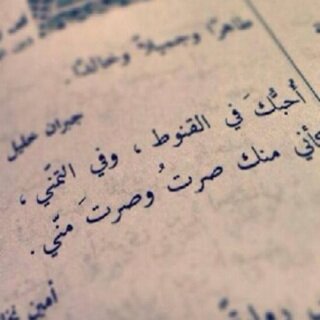 طاهرًا وجميلاً وخالدًا.
جبران خليل
أُحبُّكَ في القنوط ، وفي التمنّي ،
كأني منك صرتُ وصرتَ منّي.
أمين نخلة